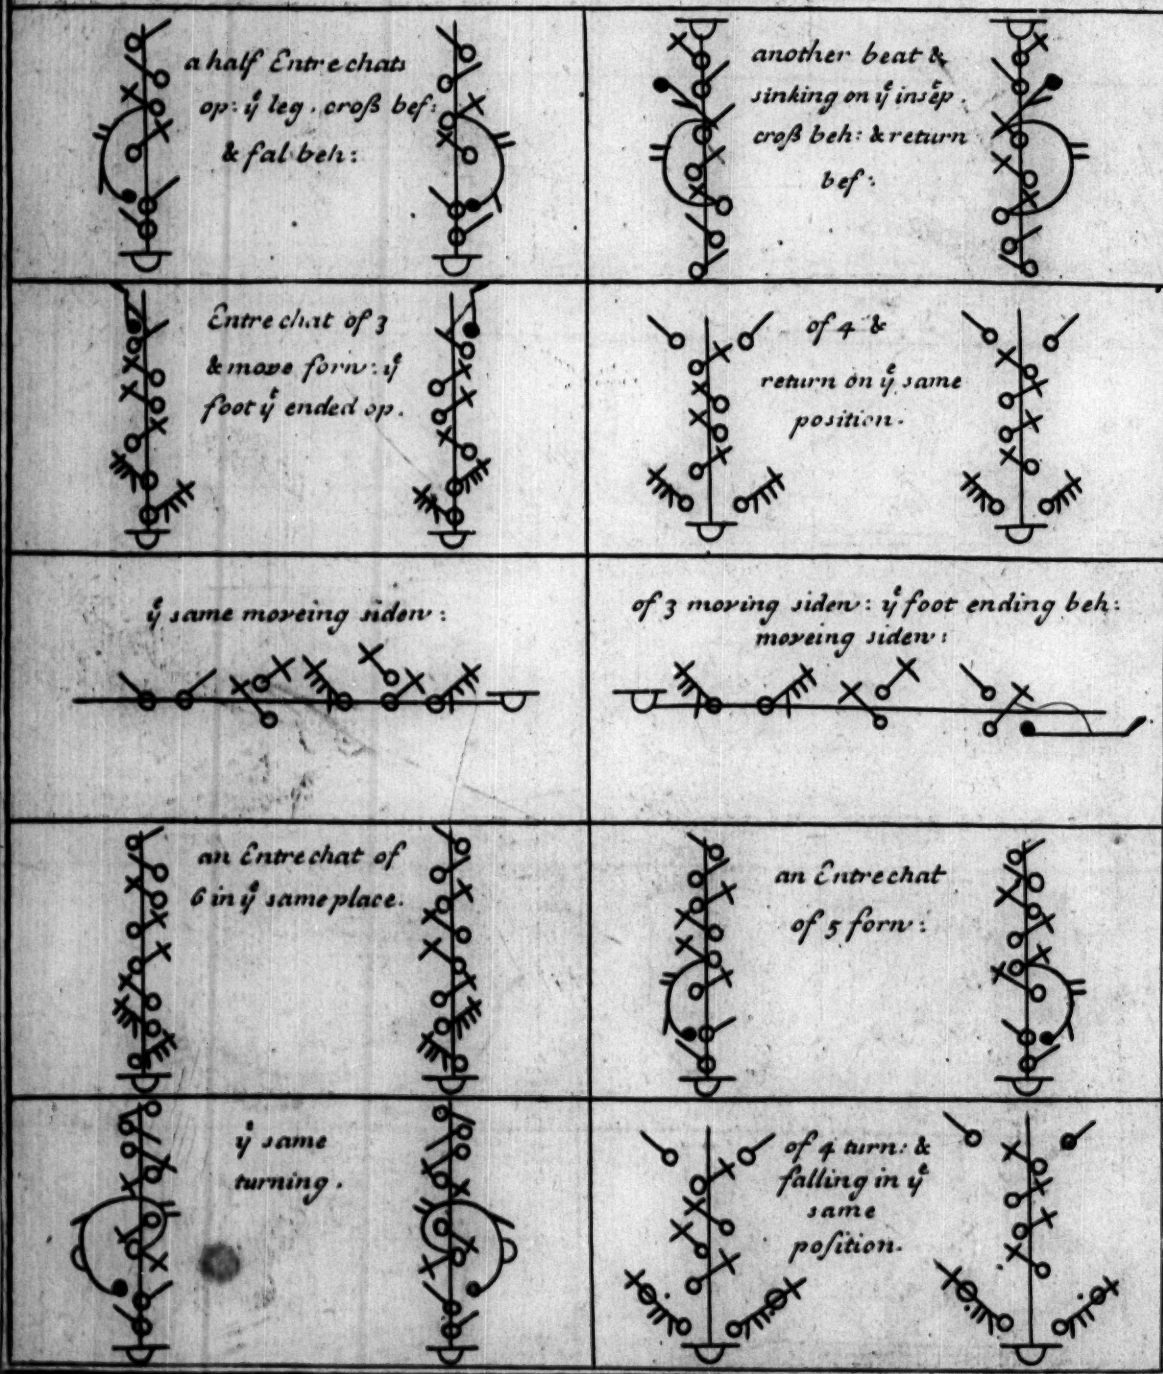 a half Entrechats
op: yͤ leg. croß bef:
& fal beh:
another beat &
sinking on yͤ insͭep.
croß beh: & return
bef:
Entrechat of 3
& move forw: yͤ
foot yͭ ended op.
of 4 &
return on yͤ same
position.
yͤ same moveing sidew:
of 3 moving sidew: yͤ foot ending beh:
moveing sidew:
an Entrechat of
6 in yͤ same place.
an Entrechat
of 5 forw:
yͤ same
turning.
of 4 turn: &
falling in yͤ
same
poſition.